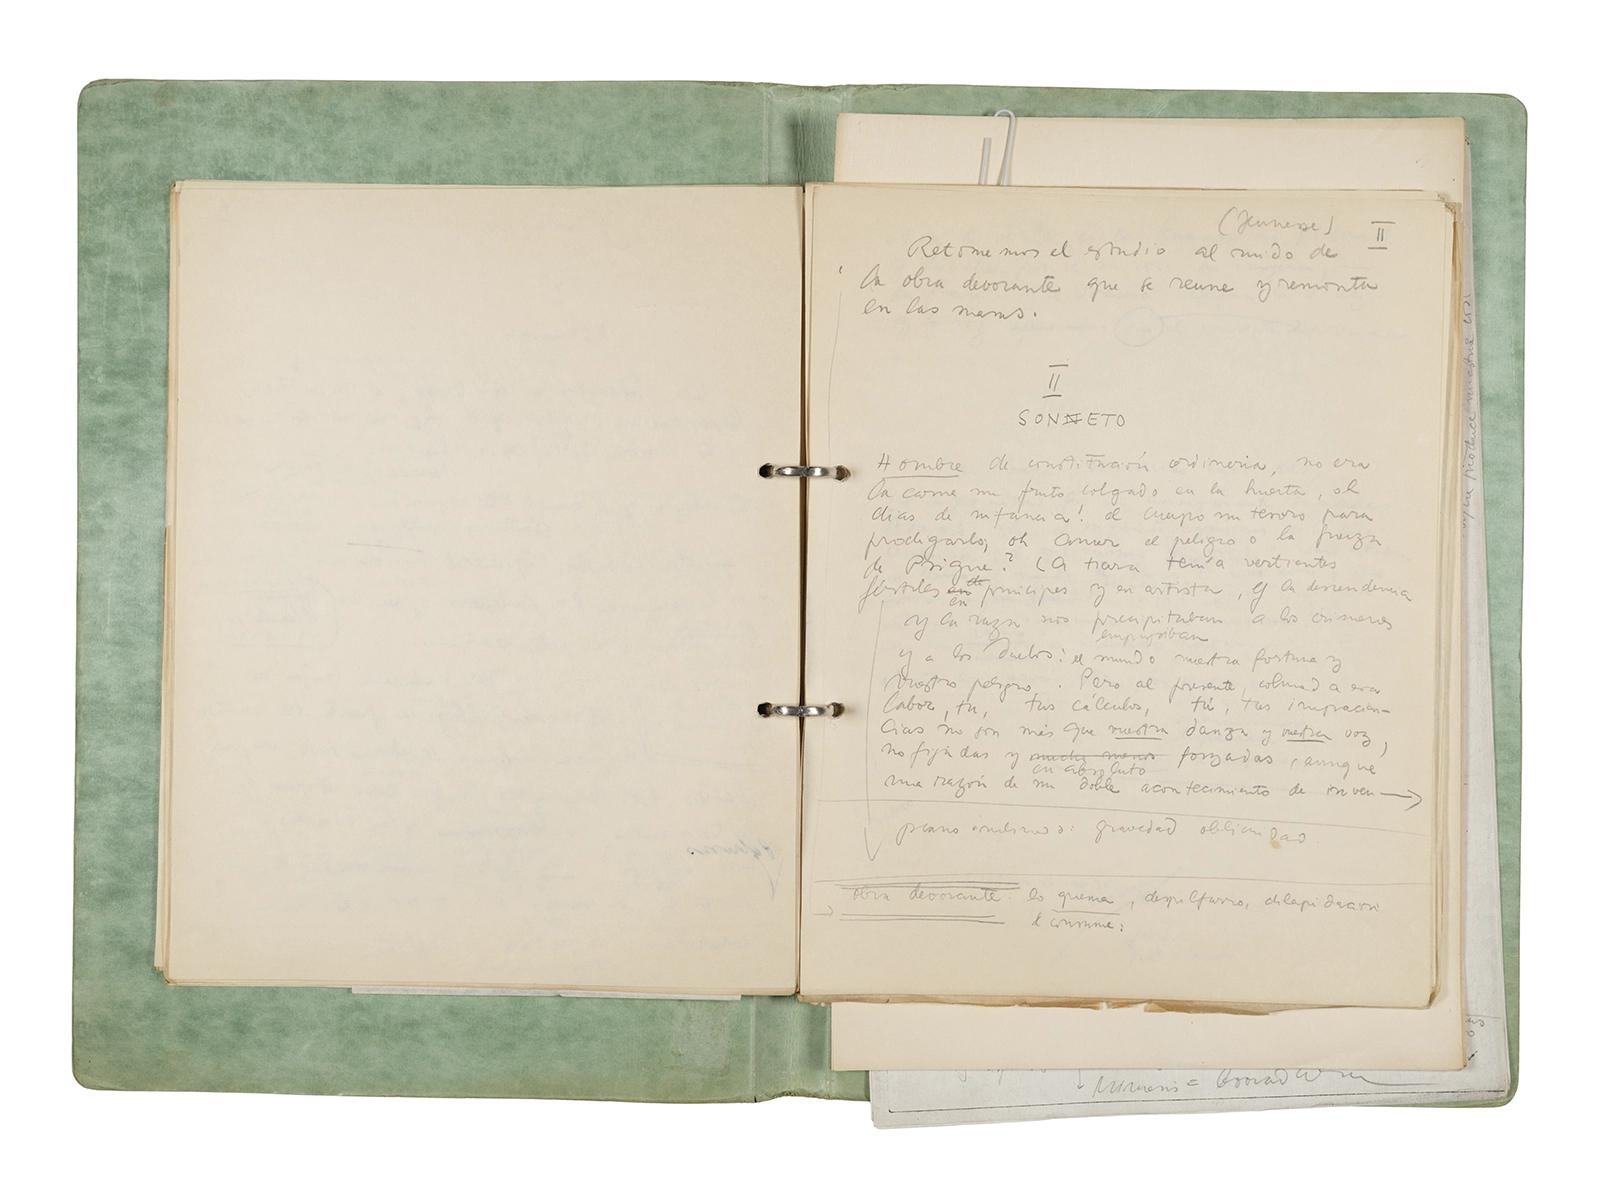 (Jeunesse) II
Retomemos el estudio al ruido de
la obra devorante que se reune y remonta
en las masas.
II
SONNETO
Hombre de constitución ordinaria, no era
la carne un fruto colgado en la huerta, oh
días de infancia! el cuerpo un tesoro para
prodigarlo; oh Amar el peligro o la fuerza
de Psique? La tiara tenía vertientes
fértiles en de príncipes y en artista, y la descendencia
en
y la raza nos precipitaban a los crímenes
empujaban
y a los duelos: el mundo nuestra fortuna y
nuestro peligro. Pero al presente, colmada esa
labor, tu, tus cálculos, tú, tus impacien-
cias no son más que nuestra danza y vuestra voz,
no fijadas y mucho menos forzadas, aunque
en absoluto
una razón de un doble acontecimiento de inven →
plano inclinado: gravedad oblicuidad
obra devorante: lo quema, despilfarro, dilapidación
consume: